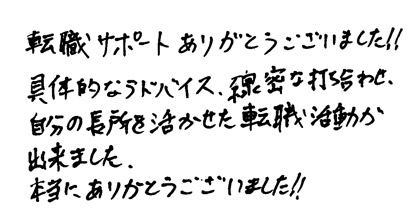 転職サポートありがとうございました!!
具体的なアドバイス、綿密な打ち合わせ、
自分の長所を活かせた転職活動が
出来ました。
本当にありがとうございました!!